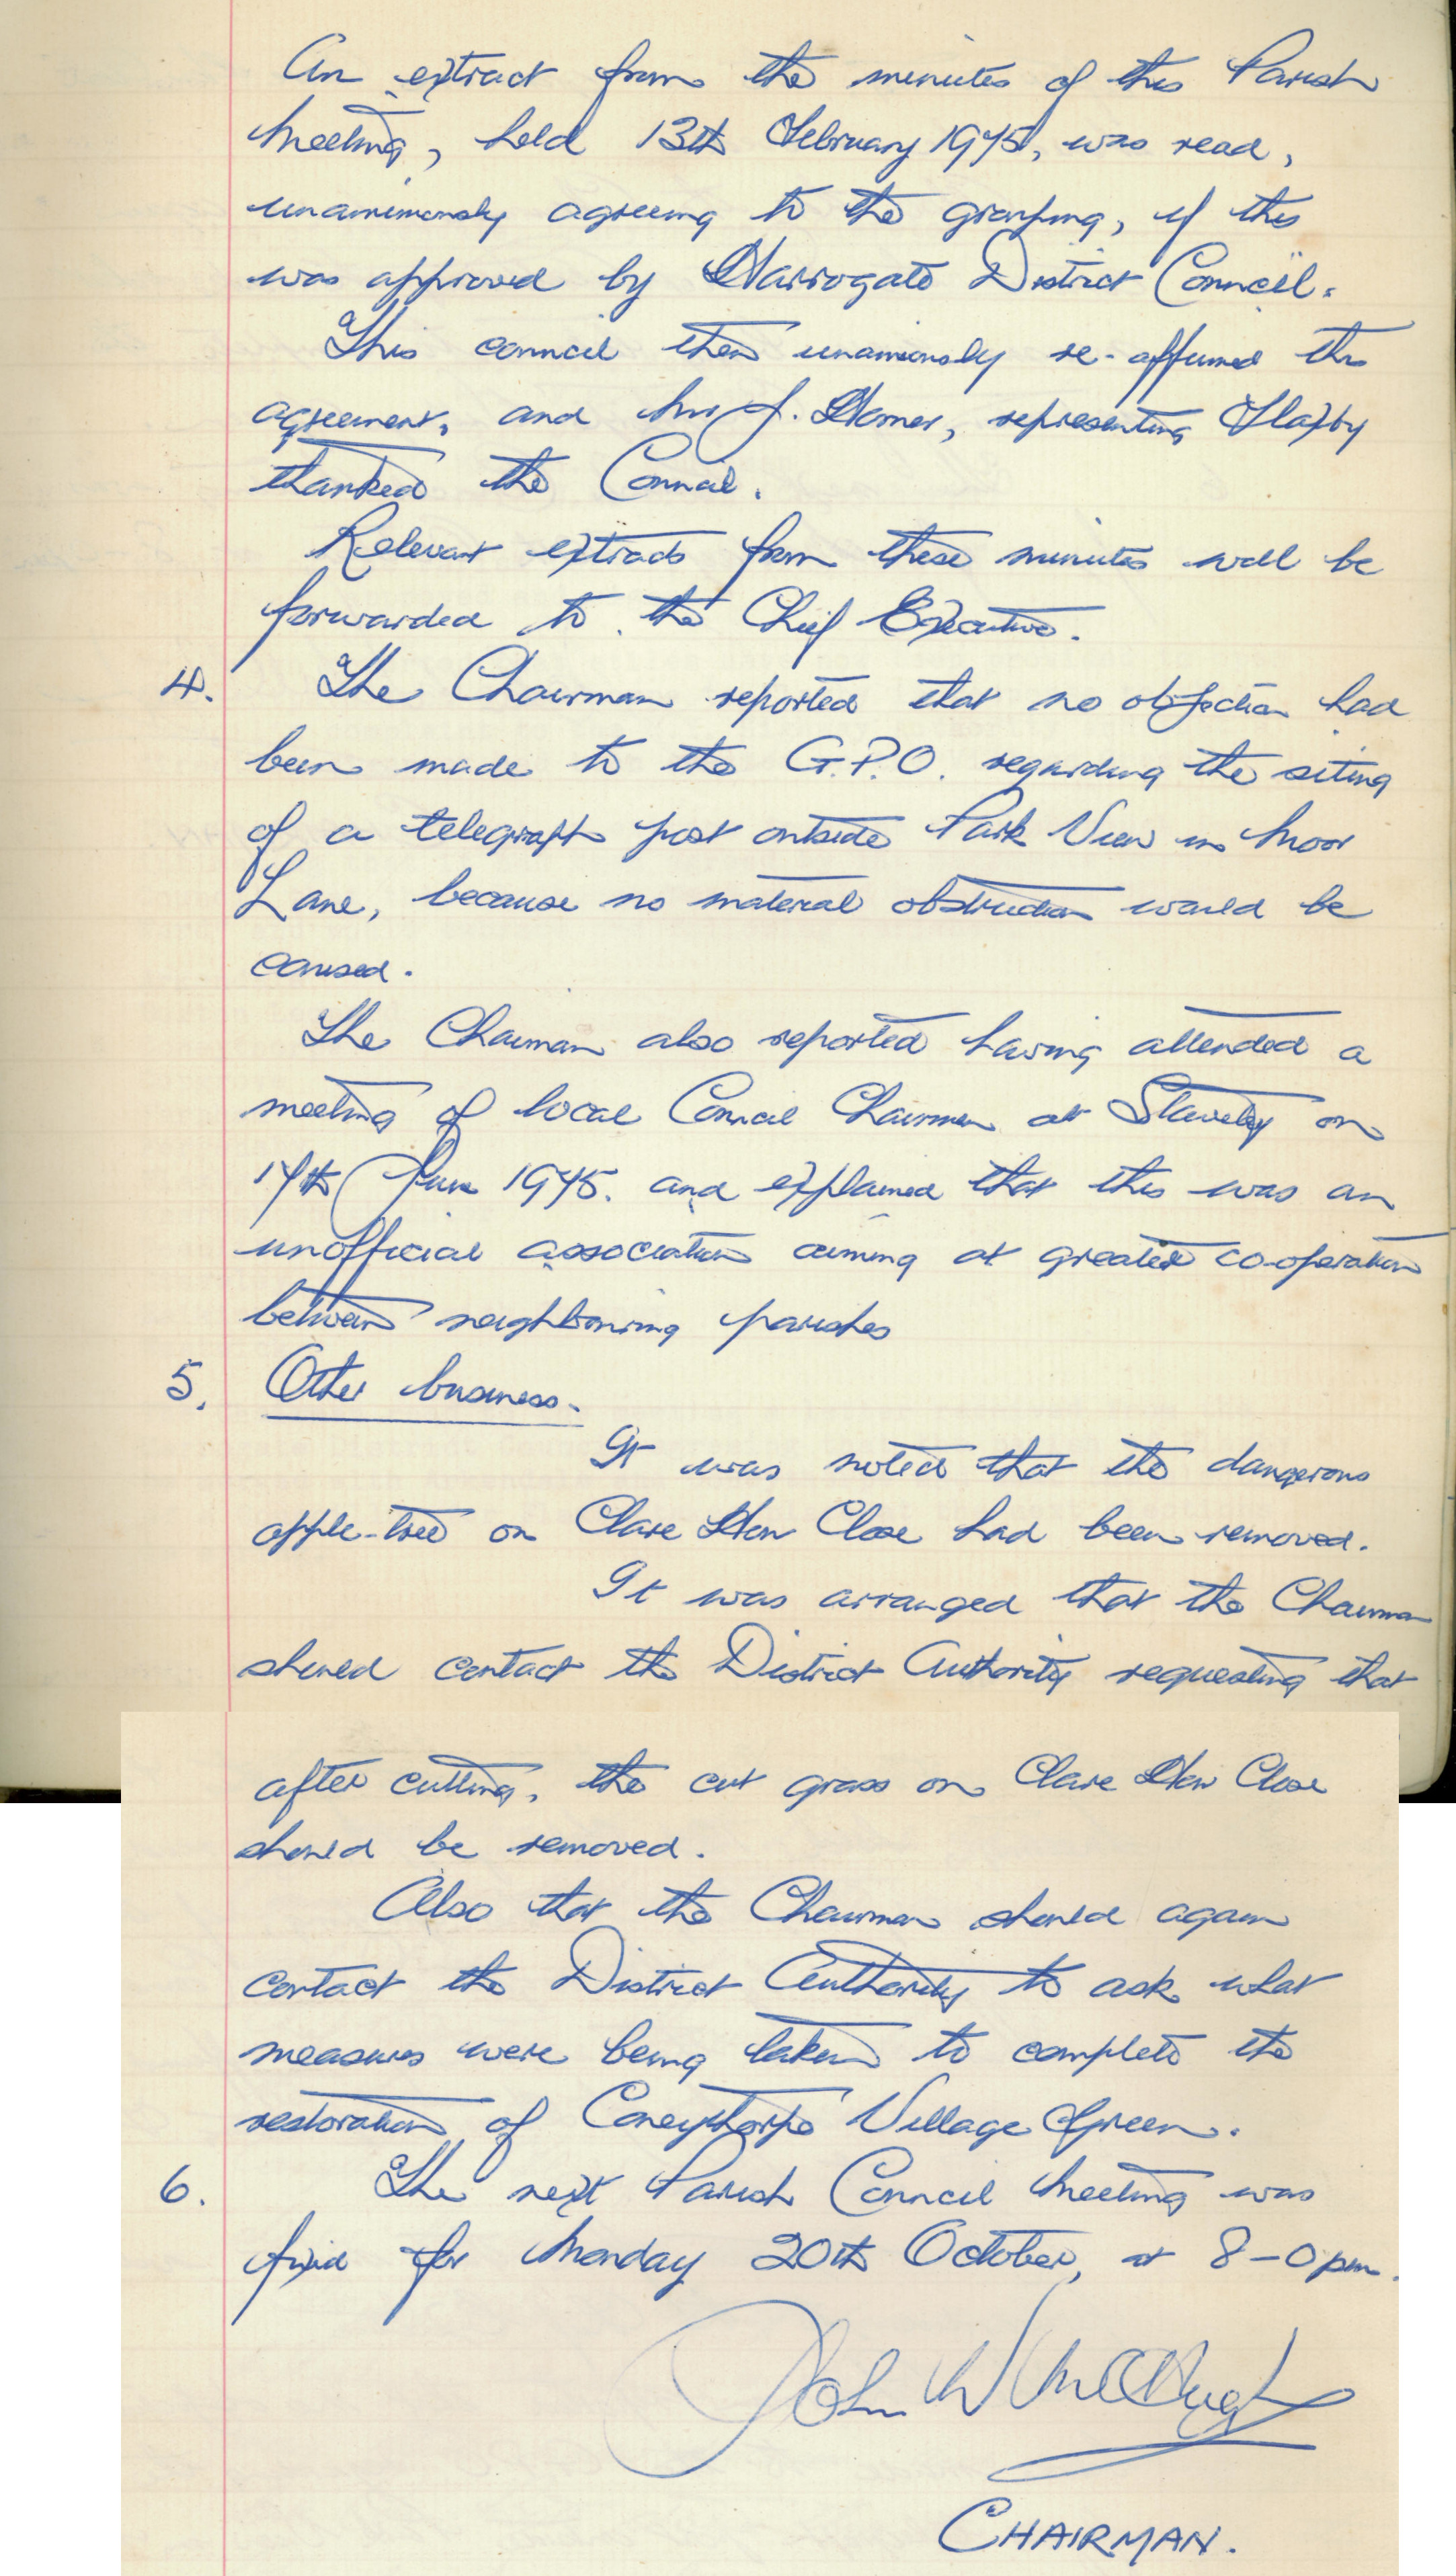 An extract from the minutes of this Parish
Meeting, held 13th February 1975, was read,
unanimously agreeing to the grouping, if this
was approved by Harrogate District Council.
This council then unanimously re-affirmed the
agreement, and Mr J. Homer, representing Flaxby
thanked the Council.
Relevant extracts from these minutes will be
forwarded to the Chief Executive.
4. The Chairman reported that no objection had
been made to the G.P.O. regarding the siting
of a telegraph post outside Park View in Moor
Lane, because no material obstruction would be
caused.
The Chairman also reported having attended a
meeting of local Council Chairmen at Staveley on
17th June 1975. and explained that this was an
unofficial association aiming at greater co-operation
between neighbouring parishes
5. Other business.
It was noted that the dangerous
apple-tree on Clare Hen Close had been removed.
It was arranged that the Chairman
should contact the District Authority requesting that
after cutting, the cut grass on Clare Hen Close
should be removed.
Also that the Chairman should again
contact the District Authority to ask what
measures were being taken to complete the
restoration of Coneythorpe Village Green.
6. The next Parish Council Meeting was
fixed for Monday 20th October, at 8-0 pm.
John W
CHAIRMAN.